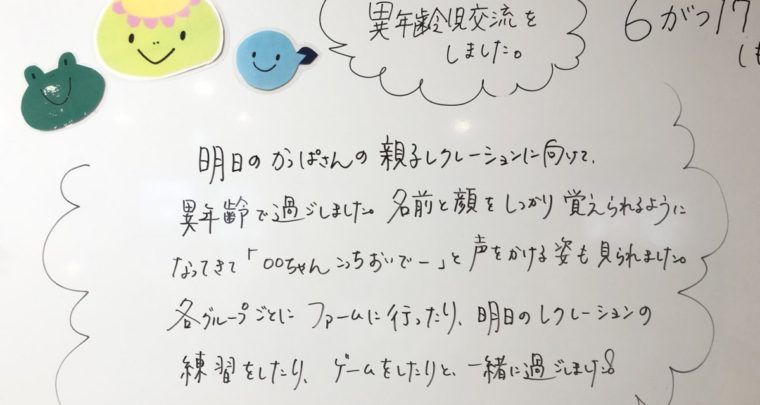 異年齢児交流を
しました。
6がつ17
明日の かっぱさんの 親子レクレーションに向けて、
異年齢で過ごしました。名前と顔をしっかり 覚えられるように
なってきて「〇〇ちゃん こっちおいでー」と 声をかける 姿も 見られました。
各グループごとに ファームに行ったり、明日のレクレーションの
練習をしたり、ゲームをしたりと、一緒に過ごしました。